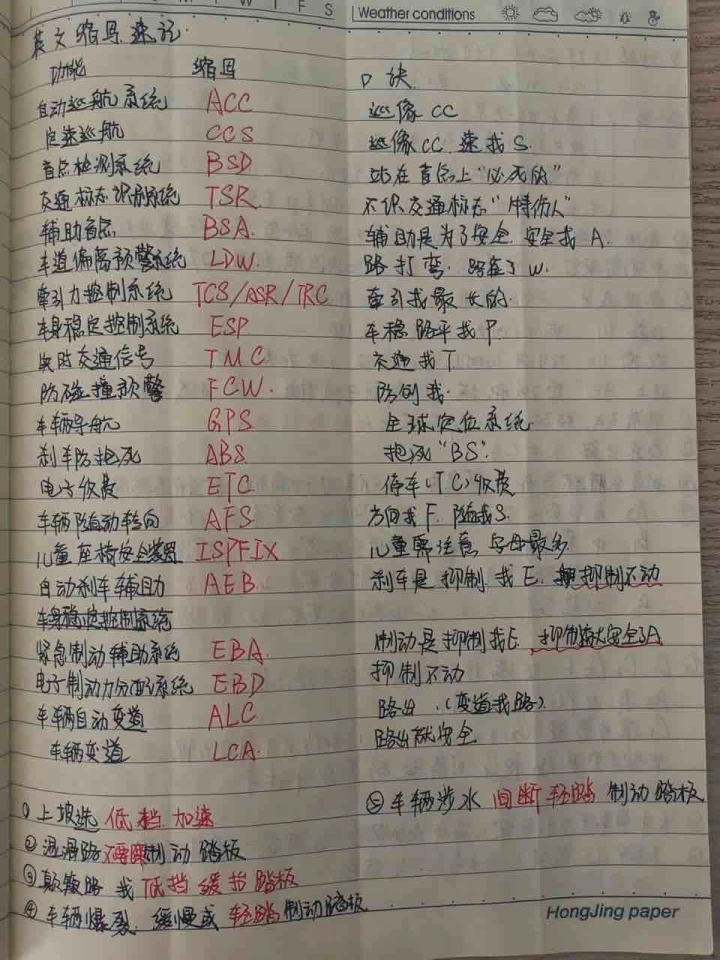 M T W T F S Weather conditions
英文缩写速记
功能 缩写 口诀
自动巡航系统 ACC 巡像CC
定速巡航 CCS 巡像CC 速找S.
盲点检测系统 BSD 站在盲点上"必死的"
交通标志识别系统 TSR 不识交通标志"特伤人"
辅助盲点 BSA. 辅助是为了安全.安全找A.
车道偏离预警系统 LDW. 路打弯.弯了W.
牵引力控制系统 TCS/ASR/TRC 牵引找最长的.
车身稳定控制系统 ESP 车稳路平找P
实时交通信号 TMC 交通找T
防碰撞预警 FCW. 防创找.
车辆导航 GPS 全球定位系统
刹车防抱死 ABS 抱死"BS".
电子收费 ETC 停车(TC)收费
车辆随动转向 AFS 方向找F.随找S.
儿童座椅安全装置 ISPFIX 儿童需注意 字母最多.
自动刹车辅助 AEB. 刹车是抑制.找E. 抑制不动
车身稳定控制系统
紧急制动辅助系统 EBA. 制动是抑制找E. 安全了A
电子制动力分配系统 EBD 抑制不动
车辆自动变道 ALC 路出.(变道找路).
车辆变道 LCA. 路出就安全
①上坡选 低挡 加速 ⑤车辆涉水 间断轻踏 制动踏板
②湿滑路 制动踏板
③颠簸路 找 低挡缓抬踏板
④车辆爆裂.缓慢或 轻踏 制动踏板
HongJing paper